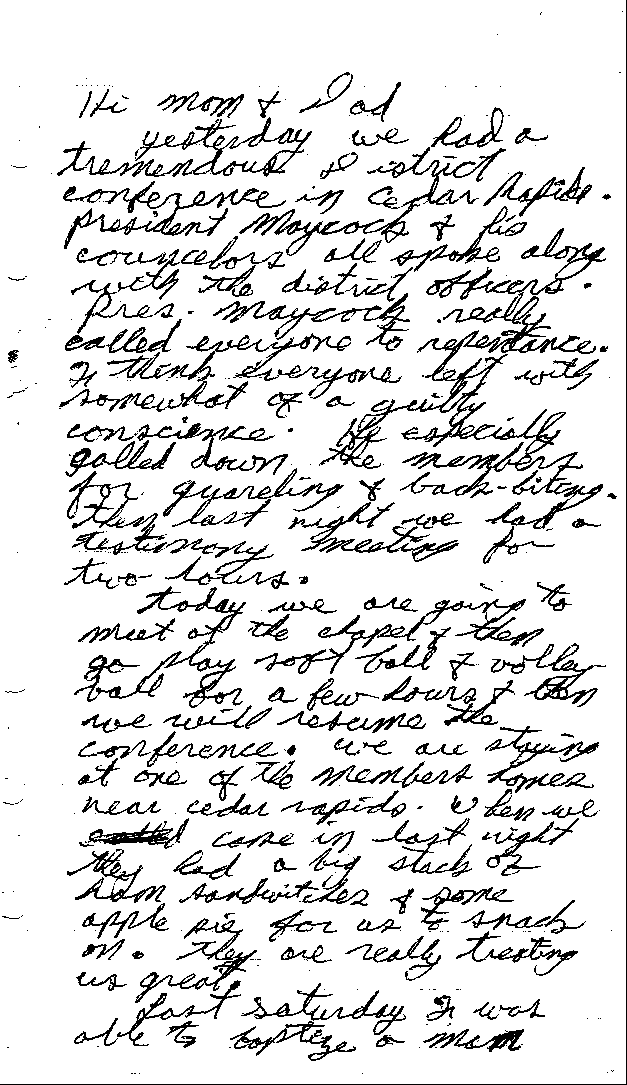 Hi mom & Dad
yesterday we had a
tremendous District
conference in Cedar Rapids.
President Maycock & his
councelors all spoke along
with the district officers.
Pres. Maycock really
called everyone to repentance.
I think everyone left with
somewhat of a guilty
conscience. He especially
galled down the members
for quareling & back-biting.
Then last night we had a
testimony meeting for
two hours.
Today we are going to
meet at the chapel & then
go play soft ball & volley
ball for a few hours & then
we will resume the
conference. We are staying
at one of the members homes
near cedar rapids. When we
came in last night
they had a big stack of
ham sandwitches & some
apple pie for us to snack
on. They are really treating
us great.
Last saturday I was
able to baptize a man